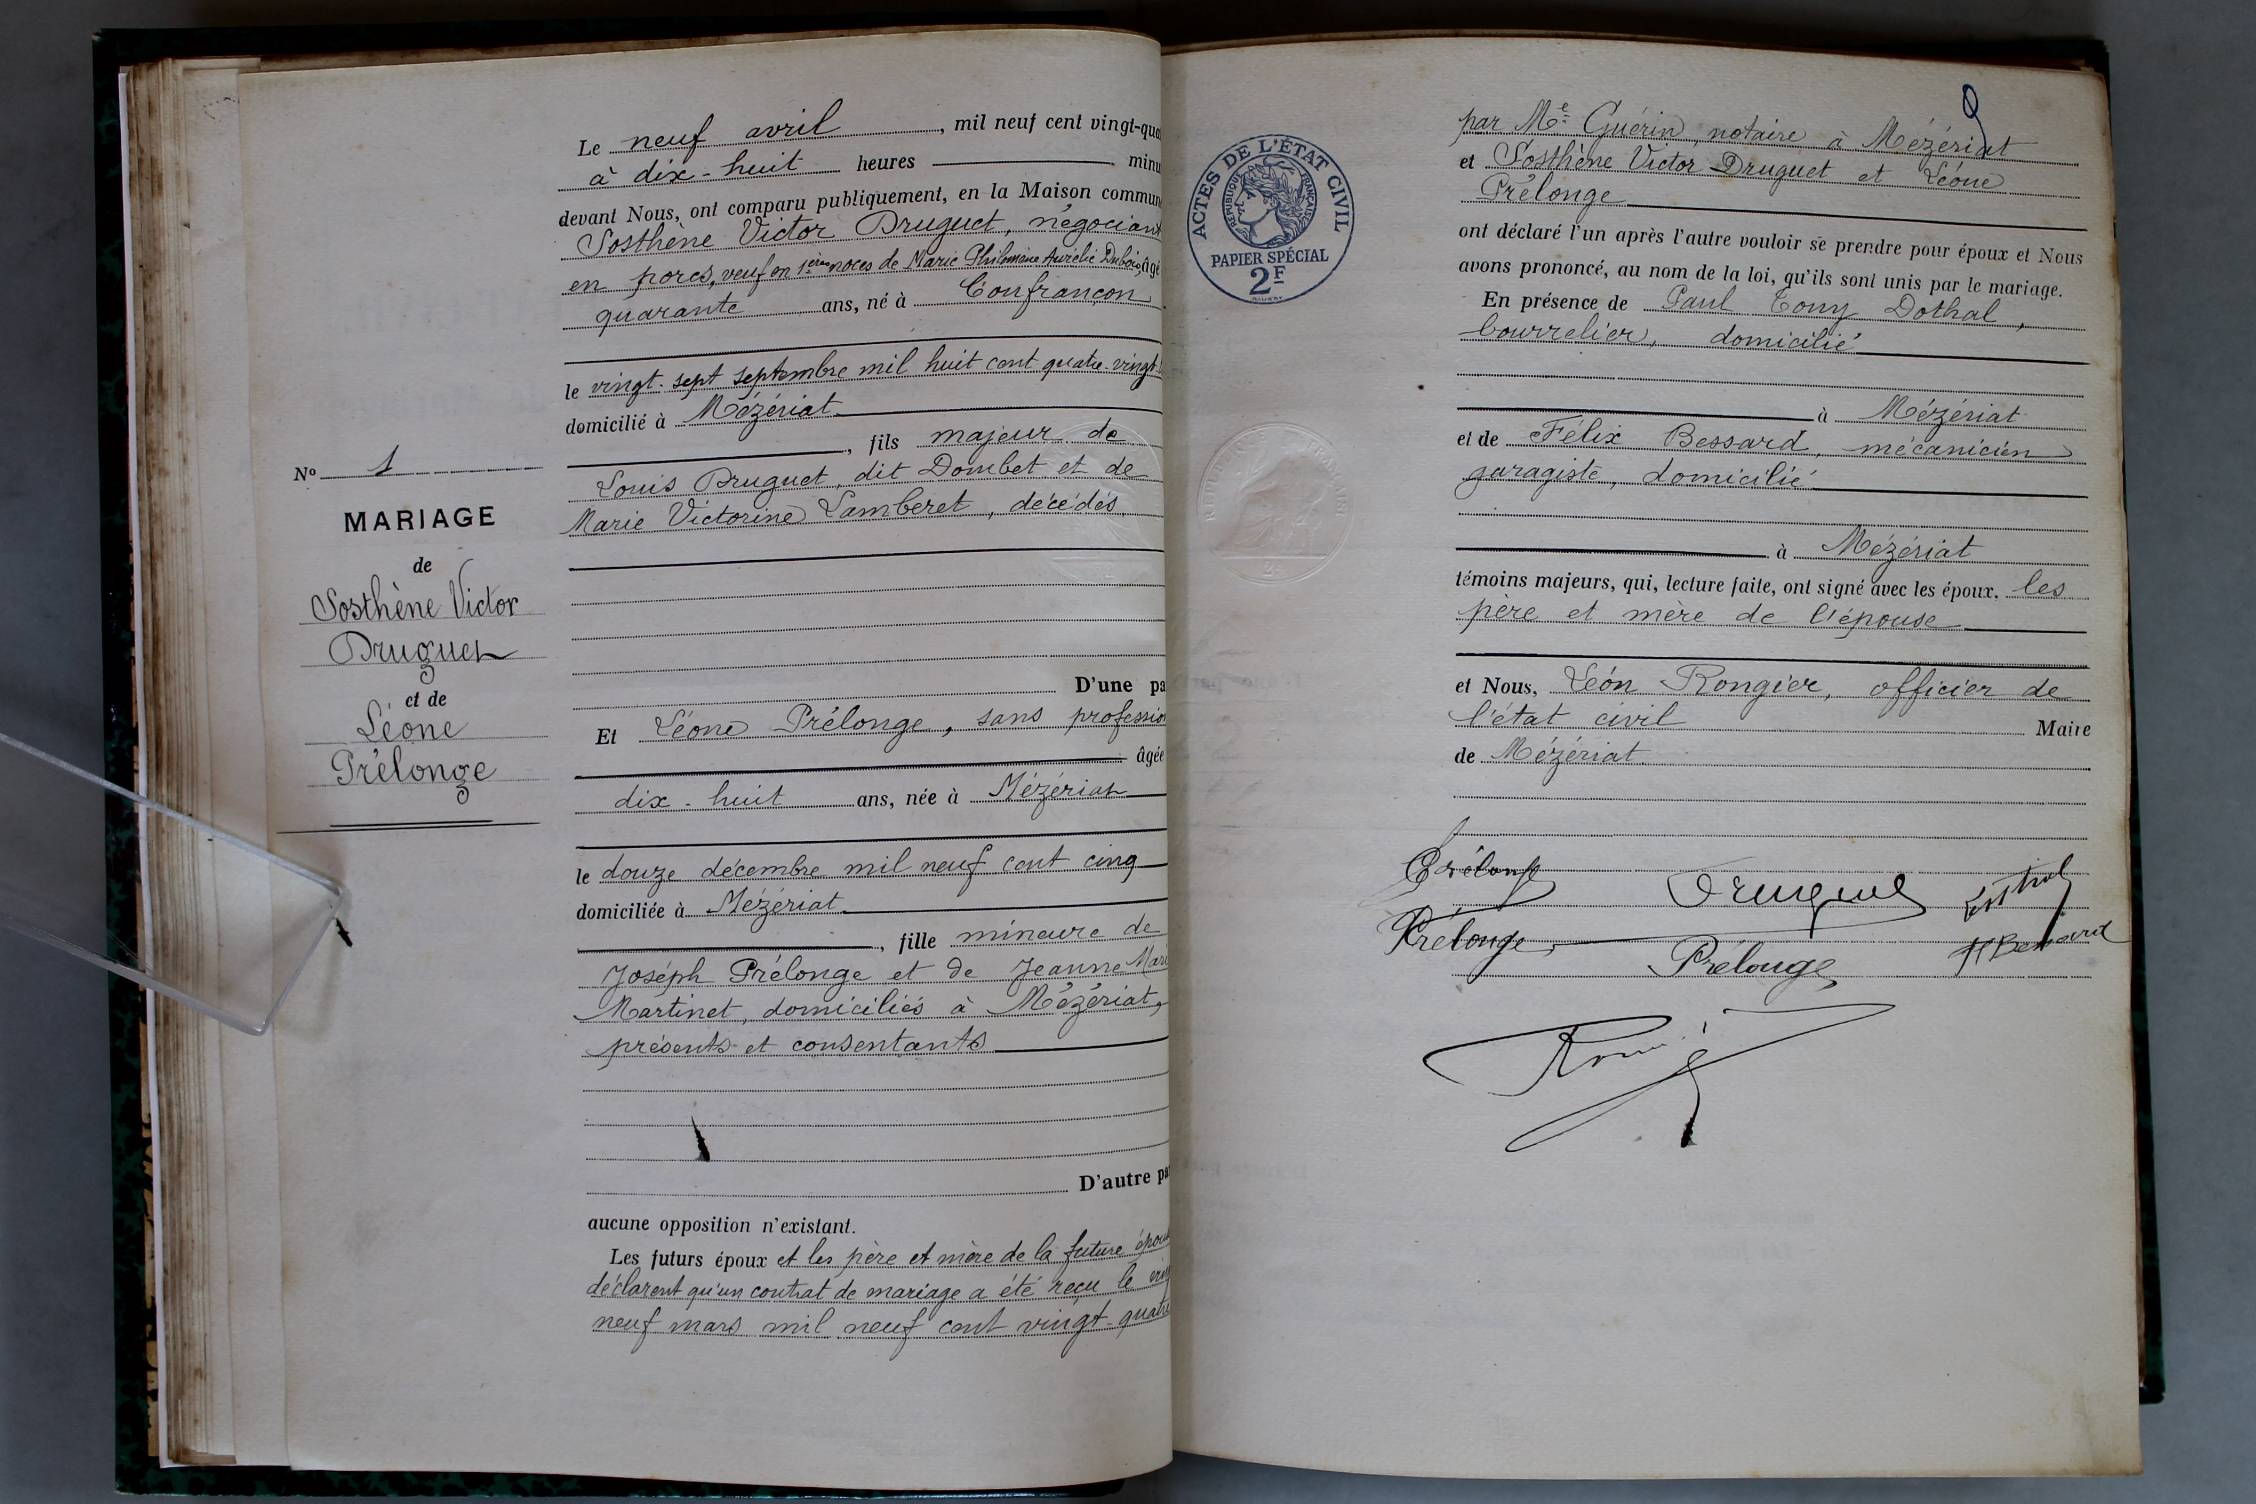 Le neuf avril, mil neuf cent vingt-qua
à dix-huit heures minu
devant Nous, ont comparu publiquement, en la Maison commun
Sosthène Victor Druguet, négociant
en porcs, veuf en 1ères noces de Marie Philomène Aurélie Dubois, âgé
quarante ans, né à Confrançon
le vingt-sept septembre mil huit cent quatre-vingt
domicilié à Mézériat
, fils majeur de
Louis Druguet, dit Dombet et de
Marie Victorine Lamberet, décédés
No 1
MARIAGE
de
Sosthène Victor
Druguet
et de
Léone
Prélonge
D'une pa
Et Léone Prélonge, sans profession
âgée
dix-huit ans, née à Mézériat
le douze décembre mil neuf cent cinq
domiciliée à Mézériat
, fille mineure de
Joséph Prélonge et de Jeanne Mari
Martinet, domiciliés à Mézériat,
présents et consentants
D'autre pa
aucune opposition n'existant.
Les futurs époux et les père et mère de la future épous
déclarent qu'un contrat de mariage a été reçu le ving
neuf mars mil neuf cent vingt-quatre
ACTES DE L'ÉTAT CIVIL
RÉPUBLIQUE FRANÇAISE
PAPIER SPÉCIAL
2F
par Me Guérin, notaire à Mézériat
et Sosthène Victor Druguet et Léone
Prélonge
ont déclaré l'un après l'autre vouloir se prendre pour époux et Nous
avons prononcé, au nom de la loi, qu'ils sont unis par le mariage.
En présence de Paul Tony Dothal,
bourrelier, domicilié
à Mézériat
et de Félix Bessard, mécanicien
garagiste, domicilié
à Mézériat
témoins majeurs, qui, lecture faite, ont signé avec les époux. les
père et mère de l'épouse
et Nous, Léon Rongier, officier de
l'état civil Maire
de Mézériat
Prélonge Druguet
Prélonge Prélonge F Bessard